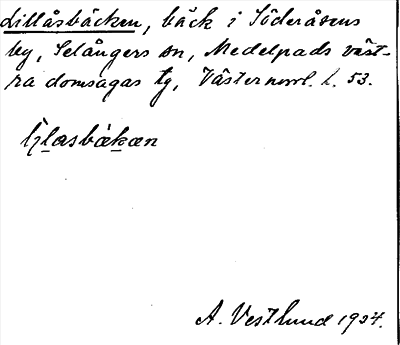 Lillåsbäcken, bäck i Söderåsens
by, Selångers sn, Medelpads väst-
ra domsagas tg, Västernorrl. l. 53.
A. Vestlund 1934.